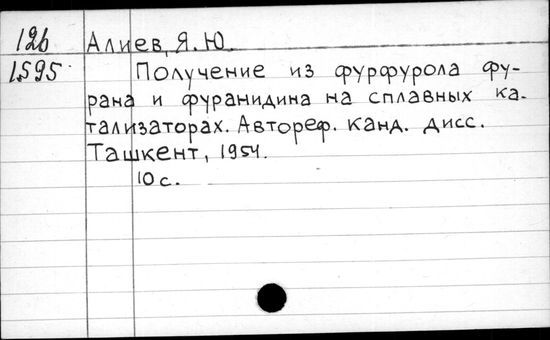 126 Алиев, Я.Ю.
1595 Получение из фурфурола фу-
рана и фуранидина на сплавных ка-
тализаторах. Автореф. канд. дисс.
Ташкент, 1954.
10 с.